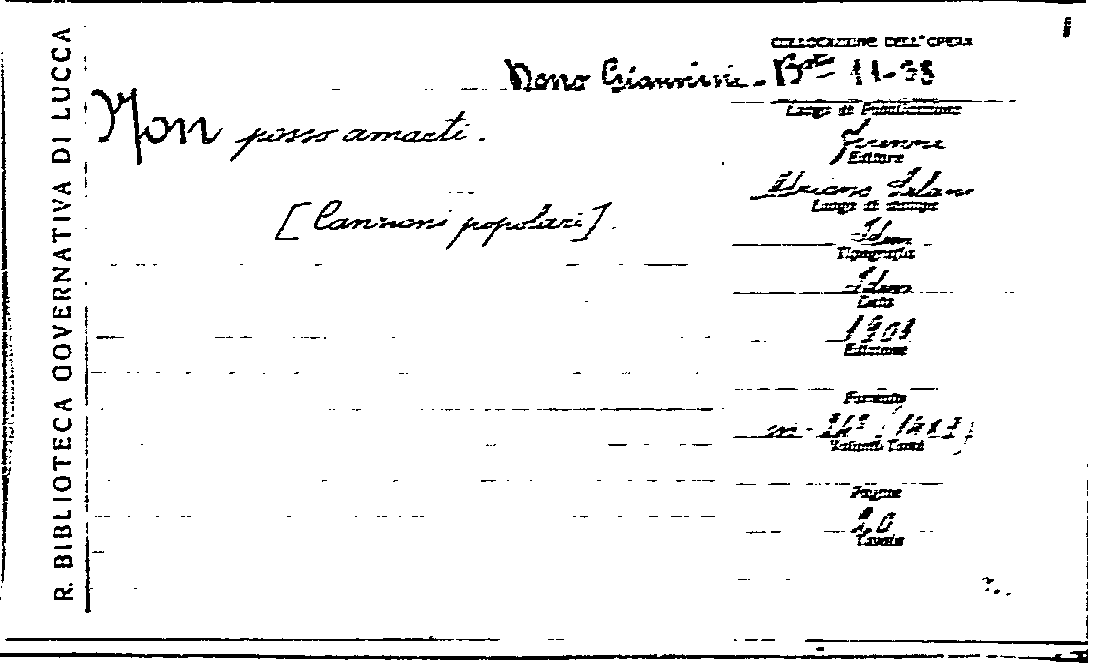 R. BIBLIOTECA GOVERNATIVA DI LUCCA
COLLOCAZIONE DELL'OPERA
Dono Giannini - B
Non posso amarti.
[Canzoni popolari].
Luogo di Pubblicazione
Firenze
Editore
Adriano Salani
Luogo di stampa
Idem
Tipografia
Idem
Data
Edizione
Formato
Volumi Tomi
Pagine
Tavole